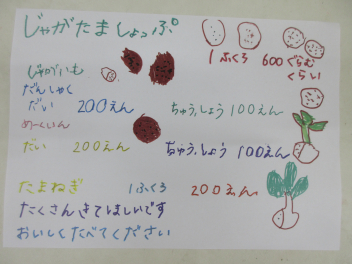 じゃがたましょっぷ
1ふくろ 600ぐらむ
くらい
じゃがいも
だんしゃく
だい 200えん ちゅう,しょう 100えん
めーくいん
だい 200えん ちゅう,しょう 100えん
たまねぎ 1ふくろ 200えん
たくさんきてほしいです
おいしくたべてください